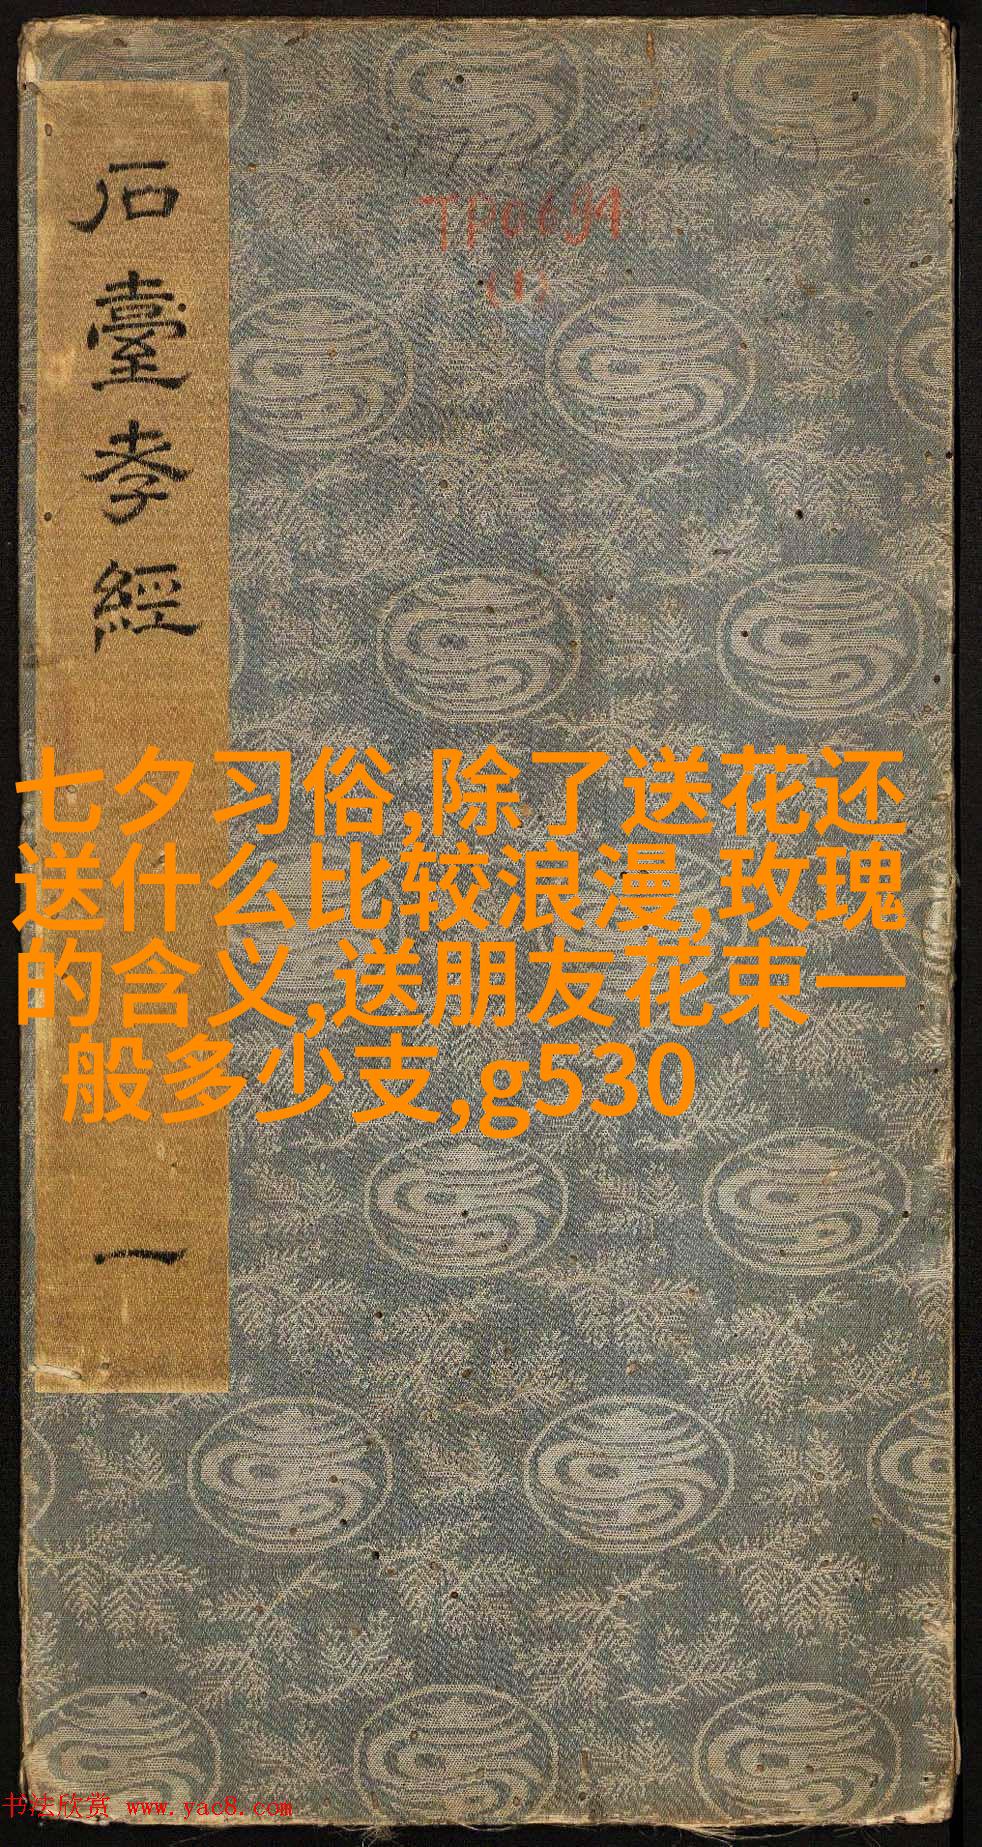 石臺孝經
一
TP0691
(1)
七夕习俗,除了送花还
送什么比较浪漫,玫瑰
的含义,送朋友花束一
般多少支,g530
书法欣赏 www.yac8.com